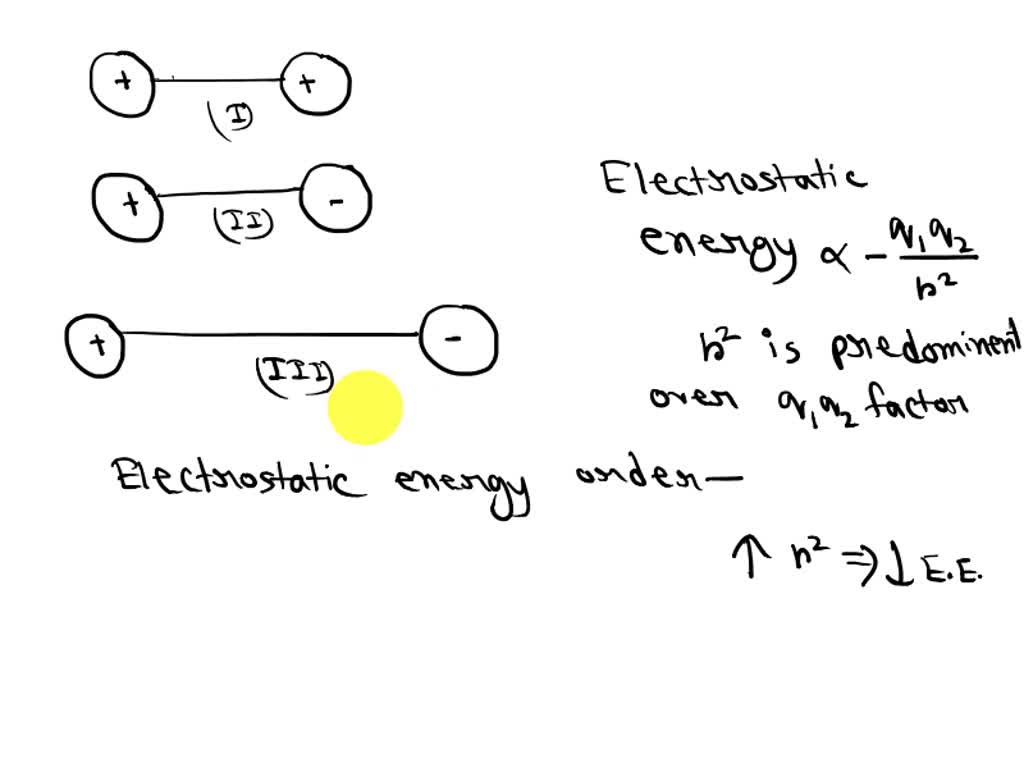 + +
(I)
+ -
(II)
+ -
(III)
Electrostatic
energy ∝ - q₁q₂/r²
r² is predominent
over q₁q₂ factor
Electrostatic energy order —
↑ r² ⇒ ↓ E.E.